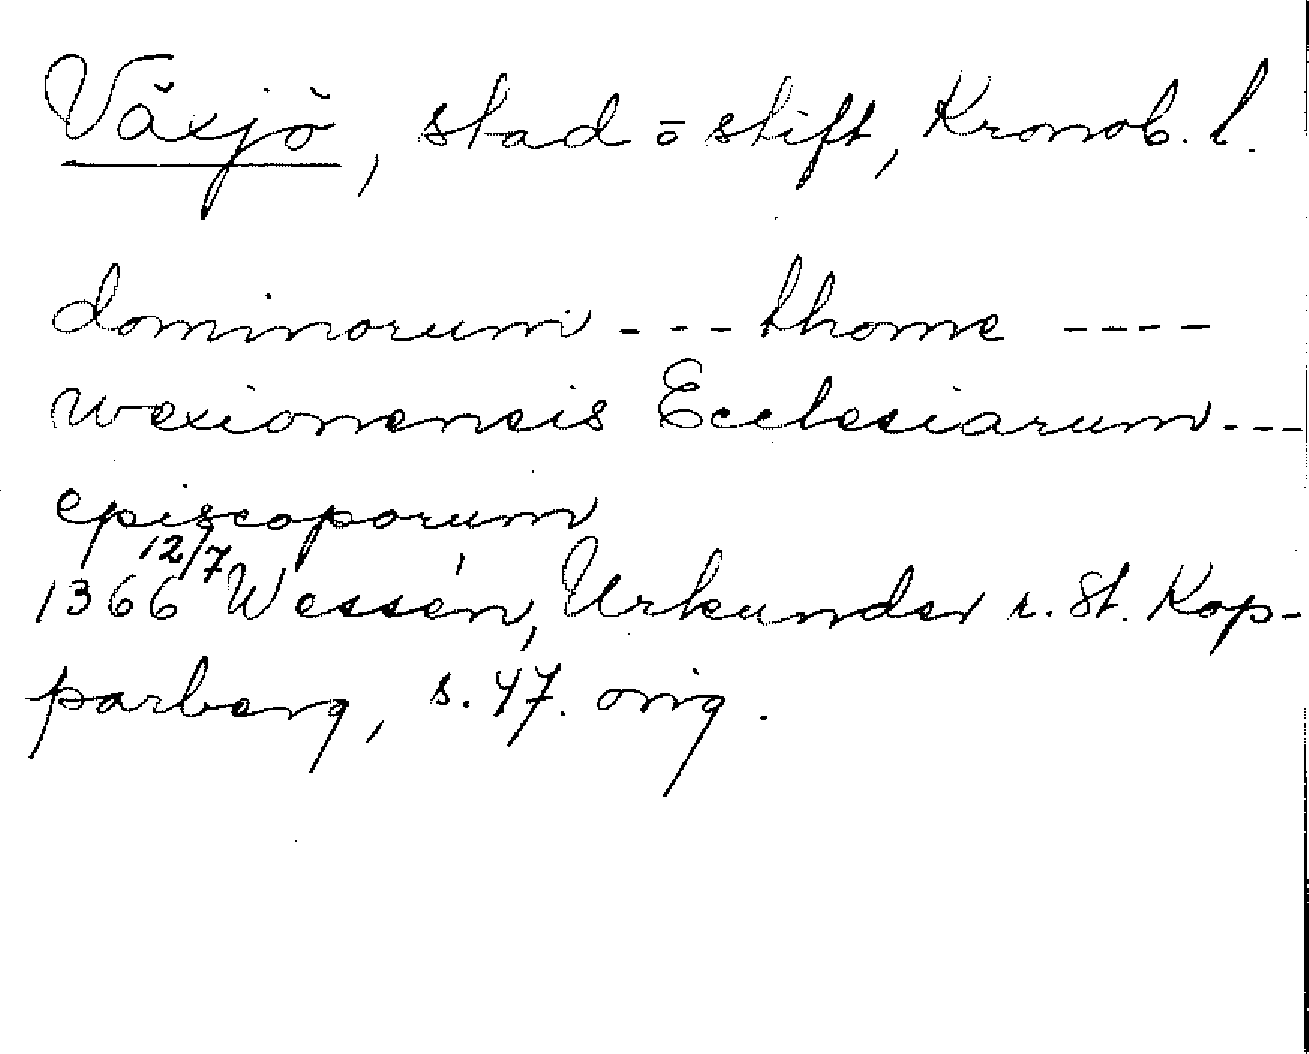 Växjö, stad o stift, Kronob. l.
dominorum --- thome ----
wexionensis Ecclesiarum ---
episcoporum
1366 12/7 Wessén, Urkunder r. St. Kop-
parberg, s. 47. orig.